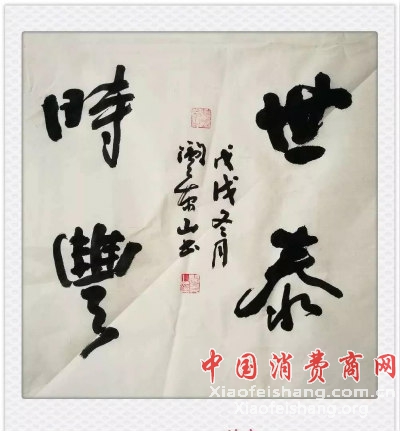 世泰
時豐
戊戌冬月
东山书
中国消费商网
Xiaofeishang.com.cn
Xiaofeishang.org